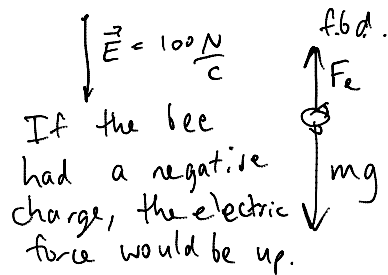 E⃗ = 100 N/C
f.b.d.
Fe
mg
If the bee
had a negative
charge, the electric
force would be up.